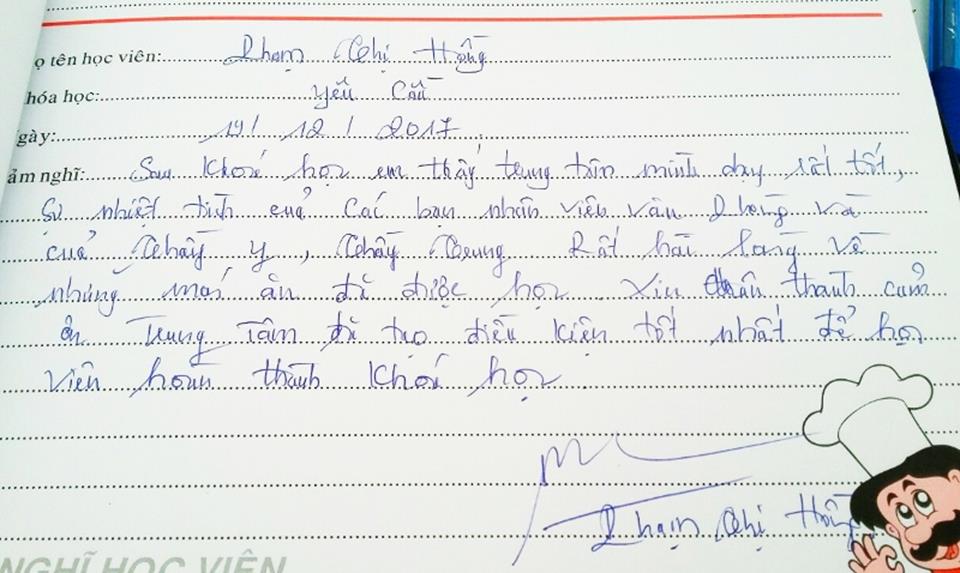 ọ tên học viên: Phạm Thị Hồng
hóa học: Yêu Cầu
gày: 19/ 12 / 2017
ảm nghĩ: Sau khoá học em thấy trung tâm mình dạy rất tốt,
Sự nhiệt tình của các bạn nhân viên văn phòng và
của Thầy Y, Thầy Trung Rất hài lòng về
những món ăn đã được học Xin chân thành cảm
ơn Trung Tâm đã tạo điều kiện tốt nhất để học
viên hoàn thành khoá học
Phạm Thị Hồng
NGHĨ HỌC VIÊN